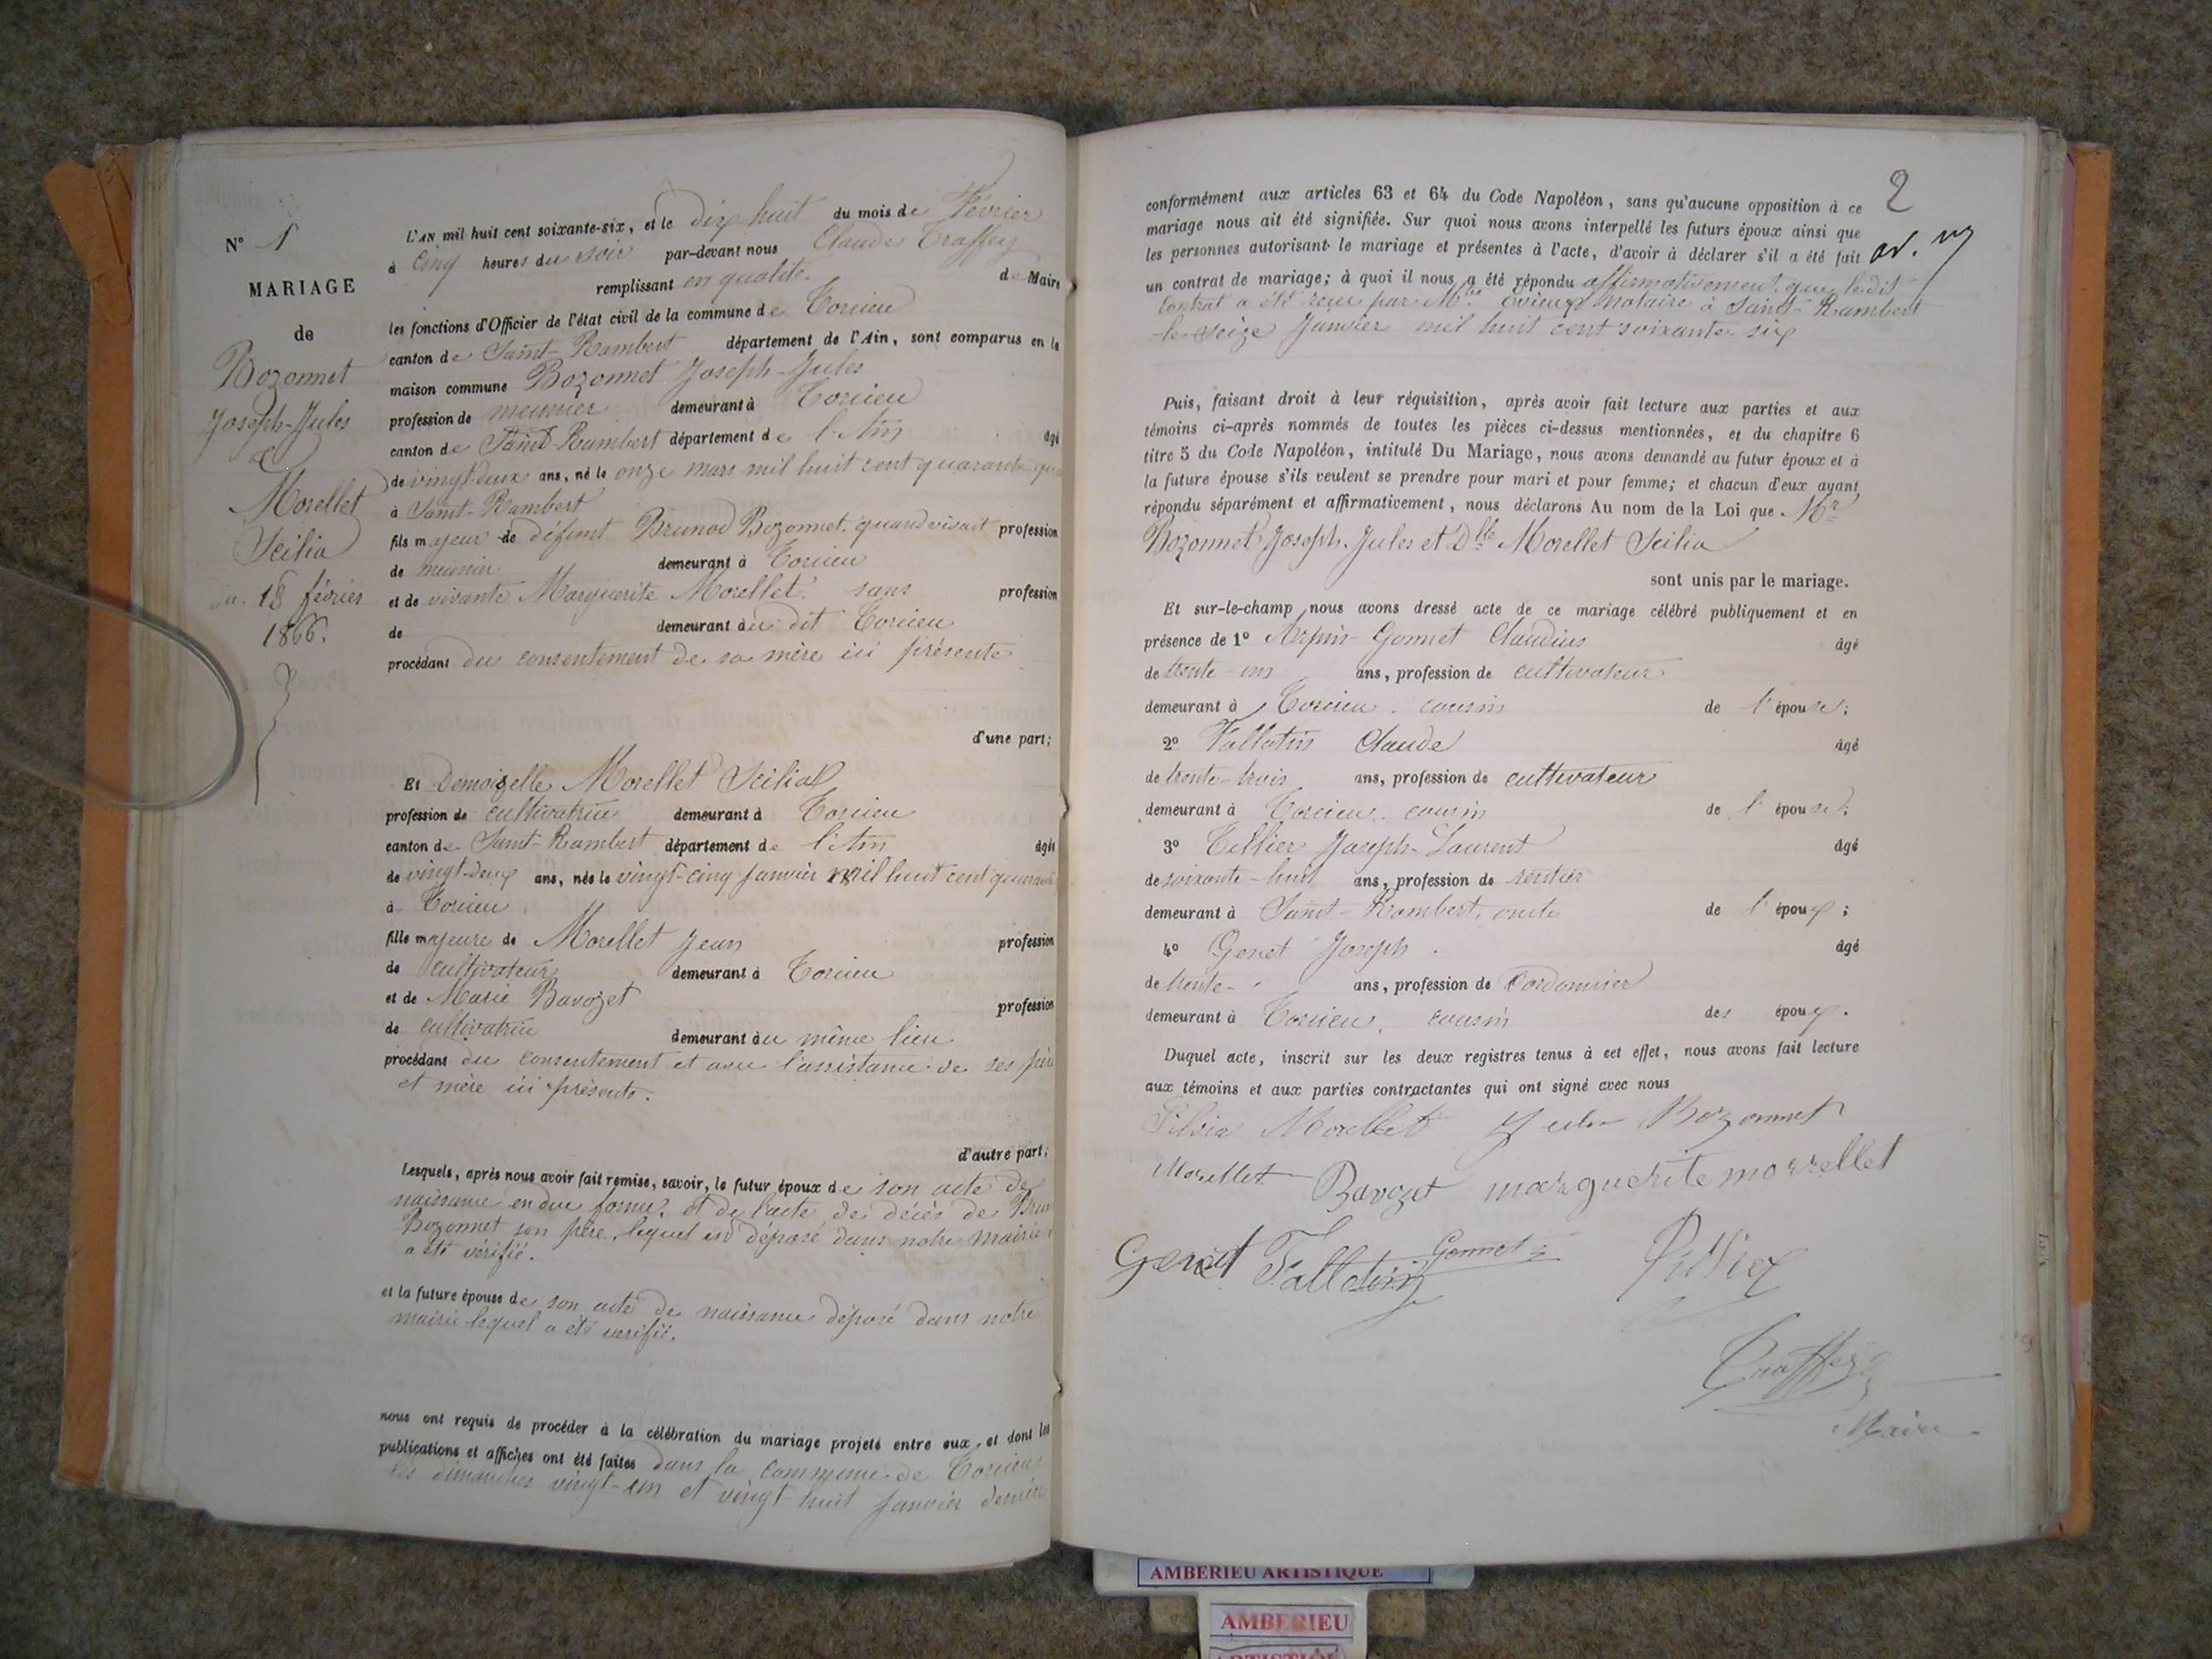 N° 1
MARIAGE
de
Bozonnet
Joseph-Jules
&
Morellet
Scilia
du 18 février
1866.
L'AN mil huit cent soixante-six, et le dix huit du mois de Février
à cinq heures du soir par-devant nous Claude Traffey
remplissant en qualité de Maire
les fonctions d'Officier de l'état civil de la commune de Torcieu
canton de Saint-Rambert département de l'Ain, sont comparus en la
maison commune Bozonnet Joseph-Jules
profession de meunier demeurant à Torcieu
canton de Saint-Rambert département de l'Ain âgé
de vingt-deux ans, né le onze mars mil huit cent quarante
à Saint-Rambert
fils majeur de défunt Brunod Bozonnet, quand vivait profession
de meunier demeurant à Torcieu
et de vivante Marguerite Morellet. sans profession
de demeurant au dit Torcieu
procédant du consentement de sa mère ici présente
d'une part;
Et Demoiselle Morellet Scilia
profession de cultivatrice demeurant à Torcieu
canton de Saint-Rambert département de l'Ain âgée
de vingt-deux ans, née le vingt-cinq Janvier mil huit cent quarante
à Torcieu.
fille majeure de Morellet Jean profession
de cultivateur demeurant à Torcieu
et de Marie Bavozet profession
de cultivatrice demeurant au même lieu
procédant du consentement et avec l'assistance de ses père
et mère ici présents.
d'autre part;
Lesquels, après nous avoir fait remise, savoir, le futur époux de son acte de
naissance en due forme, et de l'acte de décès de
Bozonnet son père, lequel est déposé dans notre mairie
a été vérifié.
et la future épouse de son acte de naissance déposé dans notre
mairie lequel a été vérifié.
nous ont requis de procéder à la célébration du mariage projeté entre eux, et dont les
publications et affiches ont été faites dans la commune de Torcieu
les dimanches vingt-un et vingt-huit Janvier dernier
2
conformément aux articles 63 et 64 du Code Napoléon, sans qu'aucune opposition à ce
mariage nous ait été signifiée. Sur quoi nous avons interpellé les futurs époux ainsi que
les personnes autorisant le mariage et présentes à l'acte, d'avoir à déclarer s'il a été fait
un contrat de mariage; à quoi il nous a été répondu affirmativement que le dit
Contrat a été reçu par Mtre Evieux notaire à Saint-Rambert
le seize Janvier mil huit cent soixante-six
Puis, faisant droit à leur réquisition, après avoir fait lecture aux parties et aux
témoins ci-après nommés de toutes les pièces ci-dessus mentionnées, et du chapitre 6
titre 5 du Code Napoléon, intitulé Du Mariage, nous avons demandé au futur époux et à
la future épouse s'ils veulent se prendre pour mari et pour femme; et chacun d'eux ayant
répondu séparément et affirmativement, nous déclarons Au nom de la Loi que Mr
Bozonnet Joseph-Jules et Dlle Morellet Scilia
sont unis par le mariage.
Et sur-le-champ nous avons dressé acte de ce mariage célébré publiquement et en
présence de 1° Arpin-Gonnet Claudius âgé
de trente-un ans, profession de cultivateur
demeurant à Torcieu. cousin de l'épouse;
2° Valletin Claude âgé
de trente-trois ans, profession de cultivateur
demeurant à Torcieu. cousin de l'épouse;
3° Tellier Joseph-Laurent âgé
de soixante-huit ans, profession de rentier
demeurant à Saint-Rambert, oncle de l'époux;
4° Genet Joseph. âgé
de trente- ans, profession de Cordonnier
demeurant à Torcieu, cousin des époux.
Duquel acte, inscrit sur les deux registres tenus à cet effet, nous avons fait lecture
aux témoins et aux parties contractantes qui ont signé avec nous
Silvia Morellet Jules Bozonnet
Morellet Bavozet marguerite morrellet
Genet Falletin Gonnet Tellier
Traffey
Maire
AMBERIEU ARTISTIQUE
AMBERIEU
ARTISTIQUE